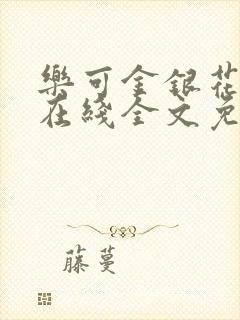 樂可金銀花
在綫全文免
藤蔓